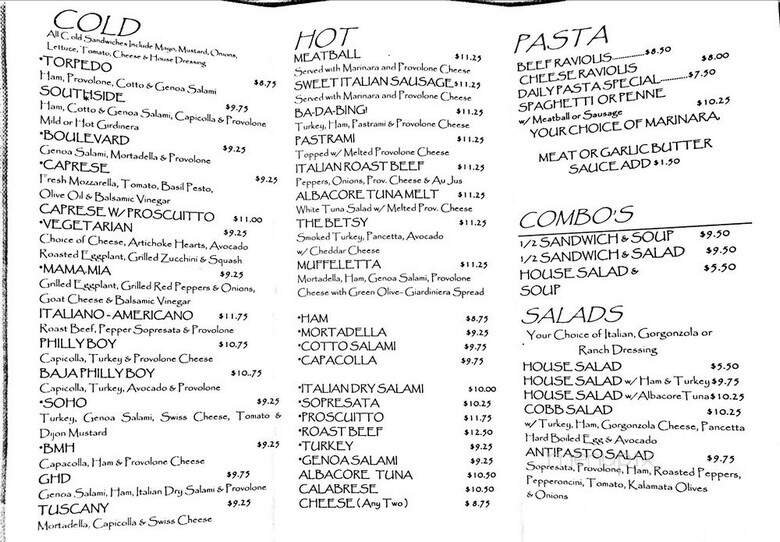 COLD
All Cold Sandwiches Include Mayo, Mustard, Onions,
Lettuce, Tomato, Cheese & House Dressing
*TORPEDO
Ham, Provolone, Cotto & Genoa Salami $8.75
SOUTHSIDE $9.75
Ham, Cotto & Genoa Salami, Capicolla & Provolone
Mild or Hot Girdinera
*BOULEVARD $9.25
Genoa Salami, Mortadella & Provolone
*CAPRESE $9.25
Fresh Mozzarella, Tomato, Basil Pesto,
Olive Oil & Balsamic Vinegar
CAPRESE W/ PROSCUITTO $11.00
*VEGETARIAN $9.25
Choice of Cheese, Artichoke Hearts, Avocado
Roasted Eggplant, Grilled Zucchini & Squash
*MAMA MIA $9.25
Grilled Eggplant, Grilled Red Peppers & Onions,
Goat Cheese & Balsamic Vinegar
ITALIANO - AMERICANO $11.75
Roast Beef, Pepper Sopresata & Provolone
PHILLY BOY $10.75
Capicolla, Turkey & Provolone Cheese
BAJA PHILLY BOY $10..75
Capicolla, Turkey, Avocado & Provolone
*SOHO $9.25
Turkey, Genoa Salami, Swiss Cheese, Tomato &
Dijon Mustard
*BMH $9.25
Capacolla, Ham & Provolone Cheese
GHD $9.75
Genoa Salami, Ham, Italian Dry Salami & Provolone
TUSCANY $9.25
Mortadella, Capicolla & Swiss Cheese
HOT
MEATBALL $11.25
Served with Marinara and Provolone Cheese
SWEET ITALIAN SAUSAGE $11.25
Served with Marinara and Provolone Cheese
BA-DA-BING! $11.25
Turkey, Ham, Pastrami & Provolone Cheese
PASTRAMI $11.25
Topped w/ Melted Provolone Cheese
ITALIAN ROAST BEEF $11.25
Peppers, Onions, Prov. Cheese & Au Jus
ALBACORE TUNA MELT $11.25
White Tuna Salad w/ Melted Prov. Cheese
THE BETSY $11.25
Smoked Turkey, Pancetta, Avocado
w/ Cheddar Cheese
MUFFELETTA $11.25
Mortadella, Ham, Genoa Salami, Provolone
Cheese with Green Olive- Giardiniera Spread
*HAM $8.75
*MORTADELLA $9.25
*COTTO SALAMI $9.75
*CAPACOLLA $9.75
*ITALIAN DRY SALAMI $10.00
*SOPRESATA $10.25
*PROSCUITTO $11.75
*ROAST BEEF $12.50
*TURKEY $9.25
*GENOA SALAMI $9.25
ALBACORE TUNA $10.50
CALABRESE $10.50
CHEESE (Any Two) $8.75
PASTA
BEEF RAVIOLIS..............$8.50
CHEESE RAVIOLIS $8.00
DAILY PASTA SPECIAL..........$7.50
SPAGHETTI OR PENNE $10.25
w/ Meatball or Sausage
YOUR CHOICE OF MARINARA,
MEAT OR GARLIC BUTTER
SAUCE ADD $1.50
COMBO'S
1/2 SANDWICH & SOUP $9.50
1/2 SANDWICH & SALAD $9.50
HOUSE SALAD & $5.50
SOUP
SALADS
Your Choice of Italian, Gorgonzola or
Ranch Dressing
HOUSE SALAD $5.50
HOUSE SALAD w/ Ham & Turkey $9.75
HOUSE SALAD w/Albacore Tuna $10.25
COBB SALAD $10.25
w/ Turkey, Ham, Gorgonzola Cheese, Pancetta
Hard Boiled Egg & Avocado
ANTIPASTO SALAD $9.75
Sopresata, Provolone, Ham, Roasted Peppers,
Pepperoncini, Tomato, Kalamata Olives
& Onions